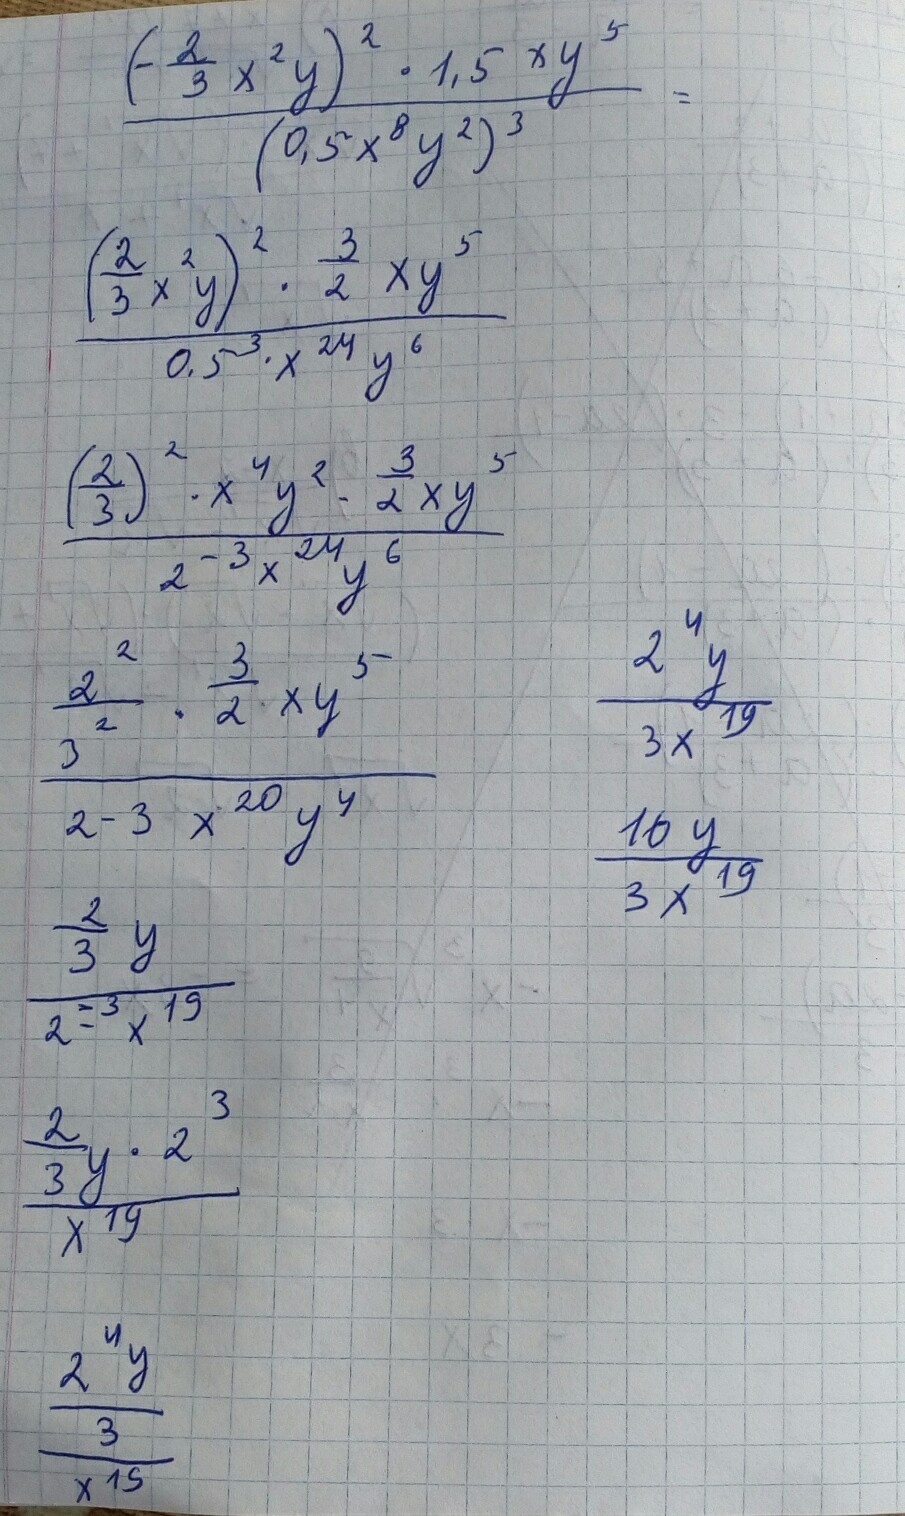 (-2/3 x²y)² · 1,5 xy⁵
(0,5x⁸y²)³ =
(2/3 x²y)² · 3/2 xy⁵
0,5³ · x²⁴ y⁶
(2/3)² · x⁴y² · 3/2 xy⁵
2⁻³ x²⁴ y⁶
2²/3² · 3/2 xy⁵
2-3 x²⁰ y⁴
2/3 y
2⁻³ x¹⁹
2/3 y · 2³
x¹⁹
2⁴y
3
x¹⁹
2⁴y
3x¹⁹
16y
3x¹⁹